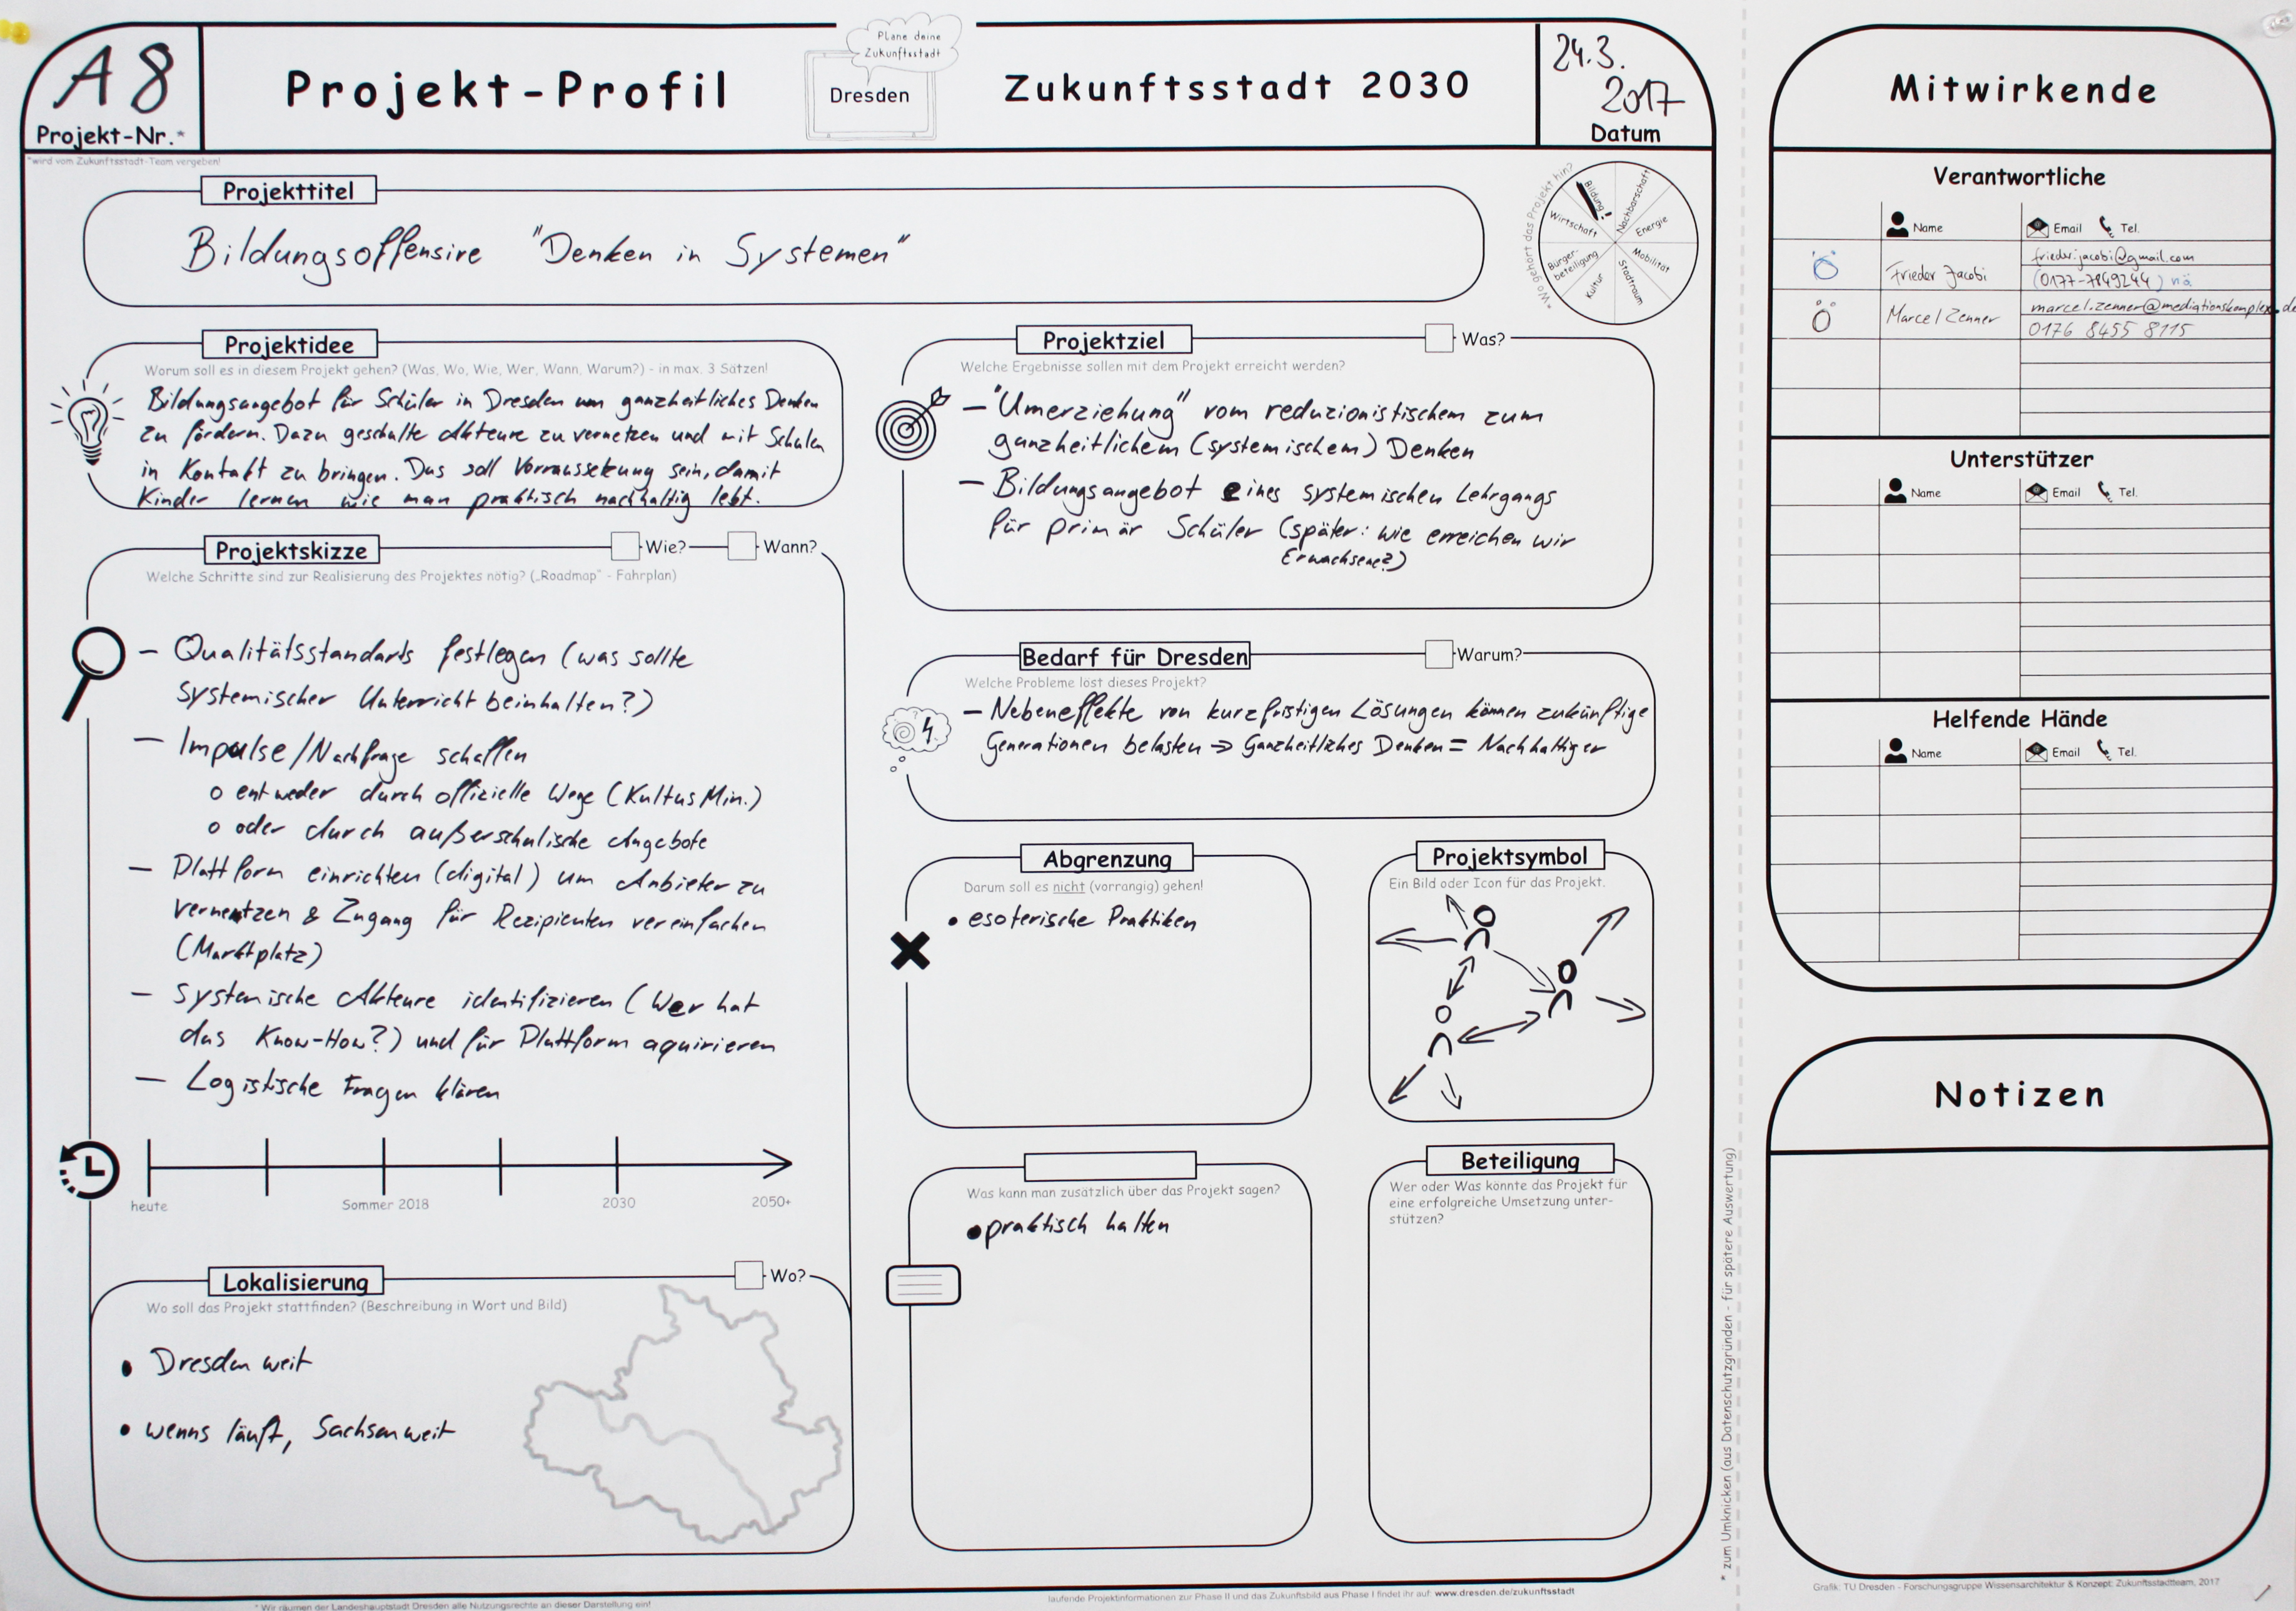 A8
Projekt-Nr.*
*wird vom Zukunftsstadt-Team vergeben!
Projekt-Profil
Plane deine
Zukunftsstadt
Dresden
Zukunftsstadt 2030
24.3.
2017
Datum
Projekttitel
Bildungsoffensive "Denken in Systemen"
*Wo gehört das Projekt hin?
Bildung!
Nachbarschaft
Energie
Mobilität
Stadtraum
Kultur
Bürger-
beteiligung
Wirtschaft
Projektidee
Worum soll es in diesem Projekt gehen? (Was, Wo, Wie, Wer, Wann, Warum?) - in max. 3 Sätzen!
Bildungsangebot für Schüler in Dresden um ganzheitliches Denken
zu fördern. Dazu geschulte Akteure zu vernetzen und mit Schulen
in Kontakt zu bringen. Das soll Vorraussetzung sein, damit
Kinder lernen wie man praktisch nachhaltig lebt.
Projektskizze
Wie?
Wann?
Welche Schritte sind zur Realisierung des Projektes nötig? („Roadmap" - Fahrplan)
– Qualitätsstandarts festlegen (was sollte
systemischer Unterricht beinhalten?)
– Impulse/Nachfrage schaffen
o entweder durch offizielle Wege (KultusMin.)
o oder durch außerschulische Angebote
– Plattform einrichten (digital) um Anbieter zu
vernetzen & Zugang für Rezipienten vereinfachen
(Marktplatz)
– Systemische Akteure identifizieren (Wer hat
das Know-How?) und für Plattform aquirieren
– Logistische Fragen klären
heute
Sommer 2018
2030
2050+
Lokalisierung
Wo?
Wo soll das Projekt stattfinden? (Beschreibung in Wort und Bild)
• Dresden weit
• wenns läuft, Sachsenweit
Projektziel
Was?
Welche Ergebnisse sollen mit dem Projekt erreicht werden?
– "Umerziehung" vom reduzionistischem zum
ganzheitlichem (systemischem) Denken
– Bildungsangebot eines systemischen Lehrgangs
für primär Schüler (später: wie erreichen wir
Erwachsene?)
Bedarf für Dresden
Warum?
Welche Probleme löst dieses Projekt?
– Nebeneffekte von kurzfristigen Lösungen können zukünftige
Generationen belasten ⇒ Ganzheitliches Denken = Nachhaltiger
Abgrenzung
Darum soll es nicht (vorrangig) gehen!
• esoterische Praktiken
Projektsymbol
Ein Bild oder Icon für das Projekt.
Was kann man zusätzlich über das Projekt sagen?
• praktisch halten
Beteiligung
Wer oder Was könnte das Projekt für
eine erfolgreiche Umsetzung unter-
stützen?
* Wir räumen der Landeshauptstadt Dresden alle Nutzungsrechte an dieser Darstellung ein!
laufende Projektinformationen zur Phase II und das Zukunftsbild aus Phase I findet ihr auf: www.dresden.de/zukunftsstadt
* zum Umknicken (aus Datenschutzgründen - für spätere Auswertung)
Mitwirkende
Verantwortliche
Name
Email
Tel.
Frieder Jacobi
frieder.jacobi@gmail.com
(0177-7849244) nö
Marcel Zenner
marcel.zenner@mediationskomplex.de
0176 8455 8115
Unterstützer
Name
Email
Tel.
Helfende Hände
Name
Email
Tel.
Notizen
Grafik: TU Dresden - Forschungsgruppe Wissensarchitektur & Konzept: Zukunftsstadtteam, 2017